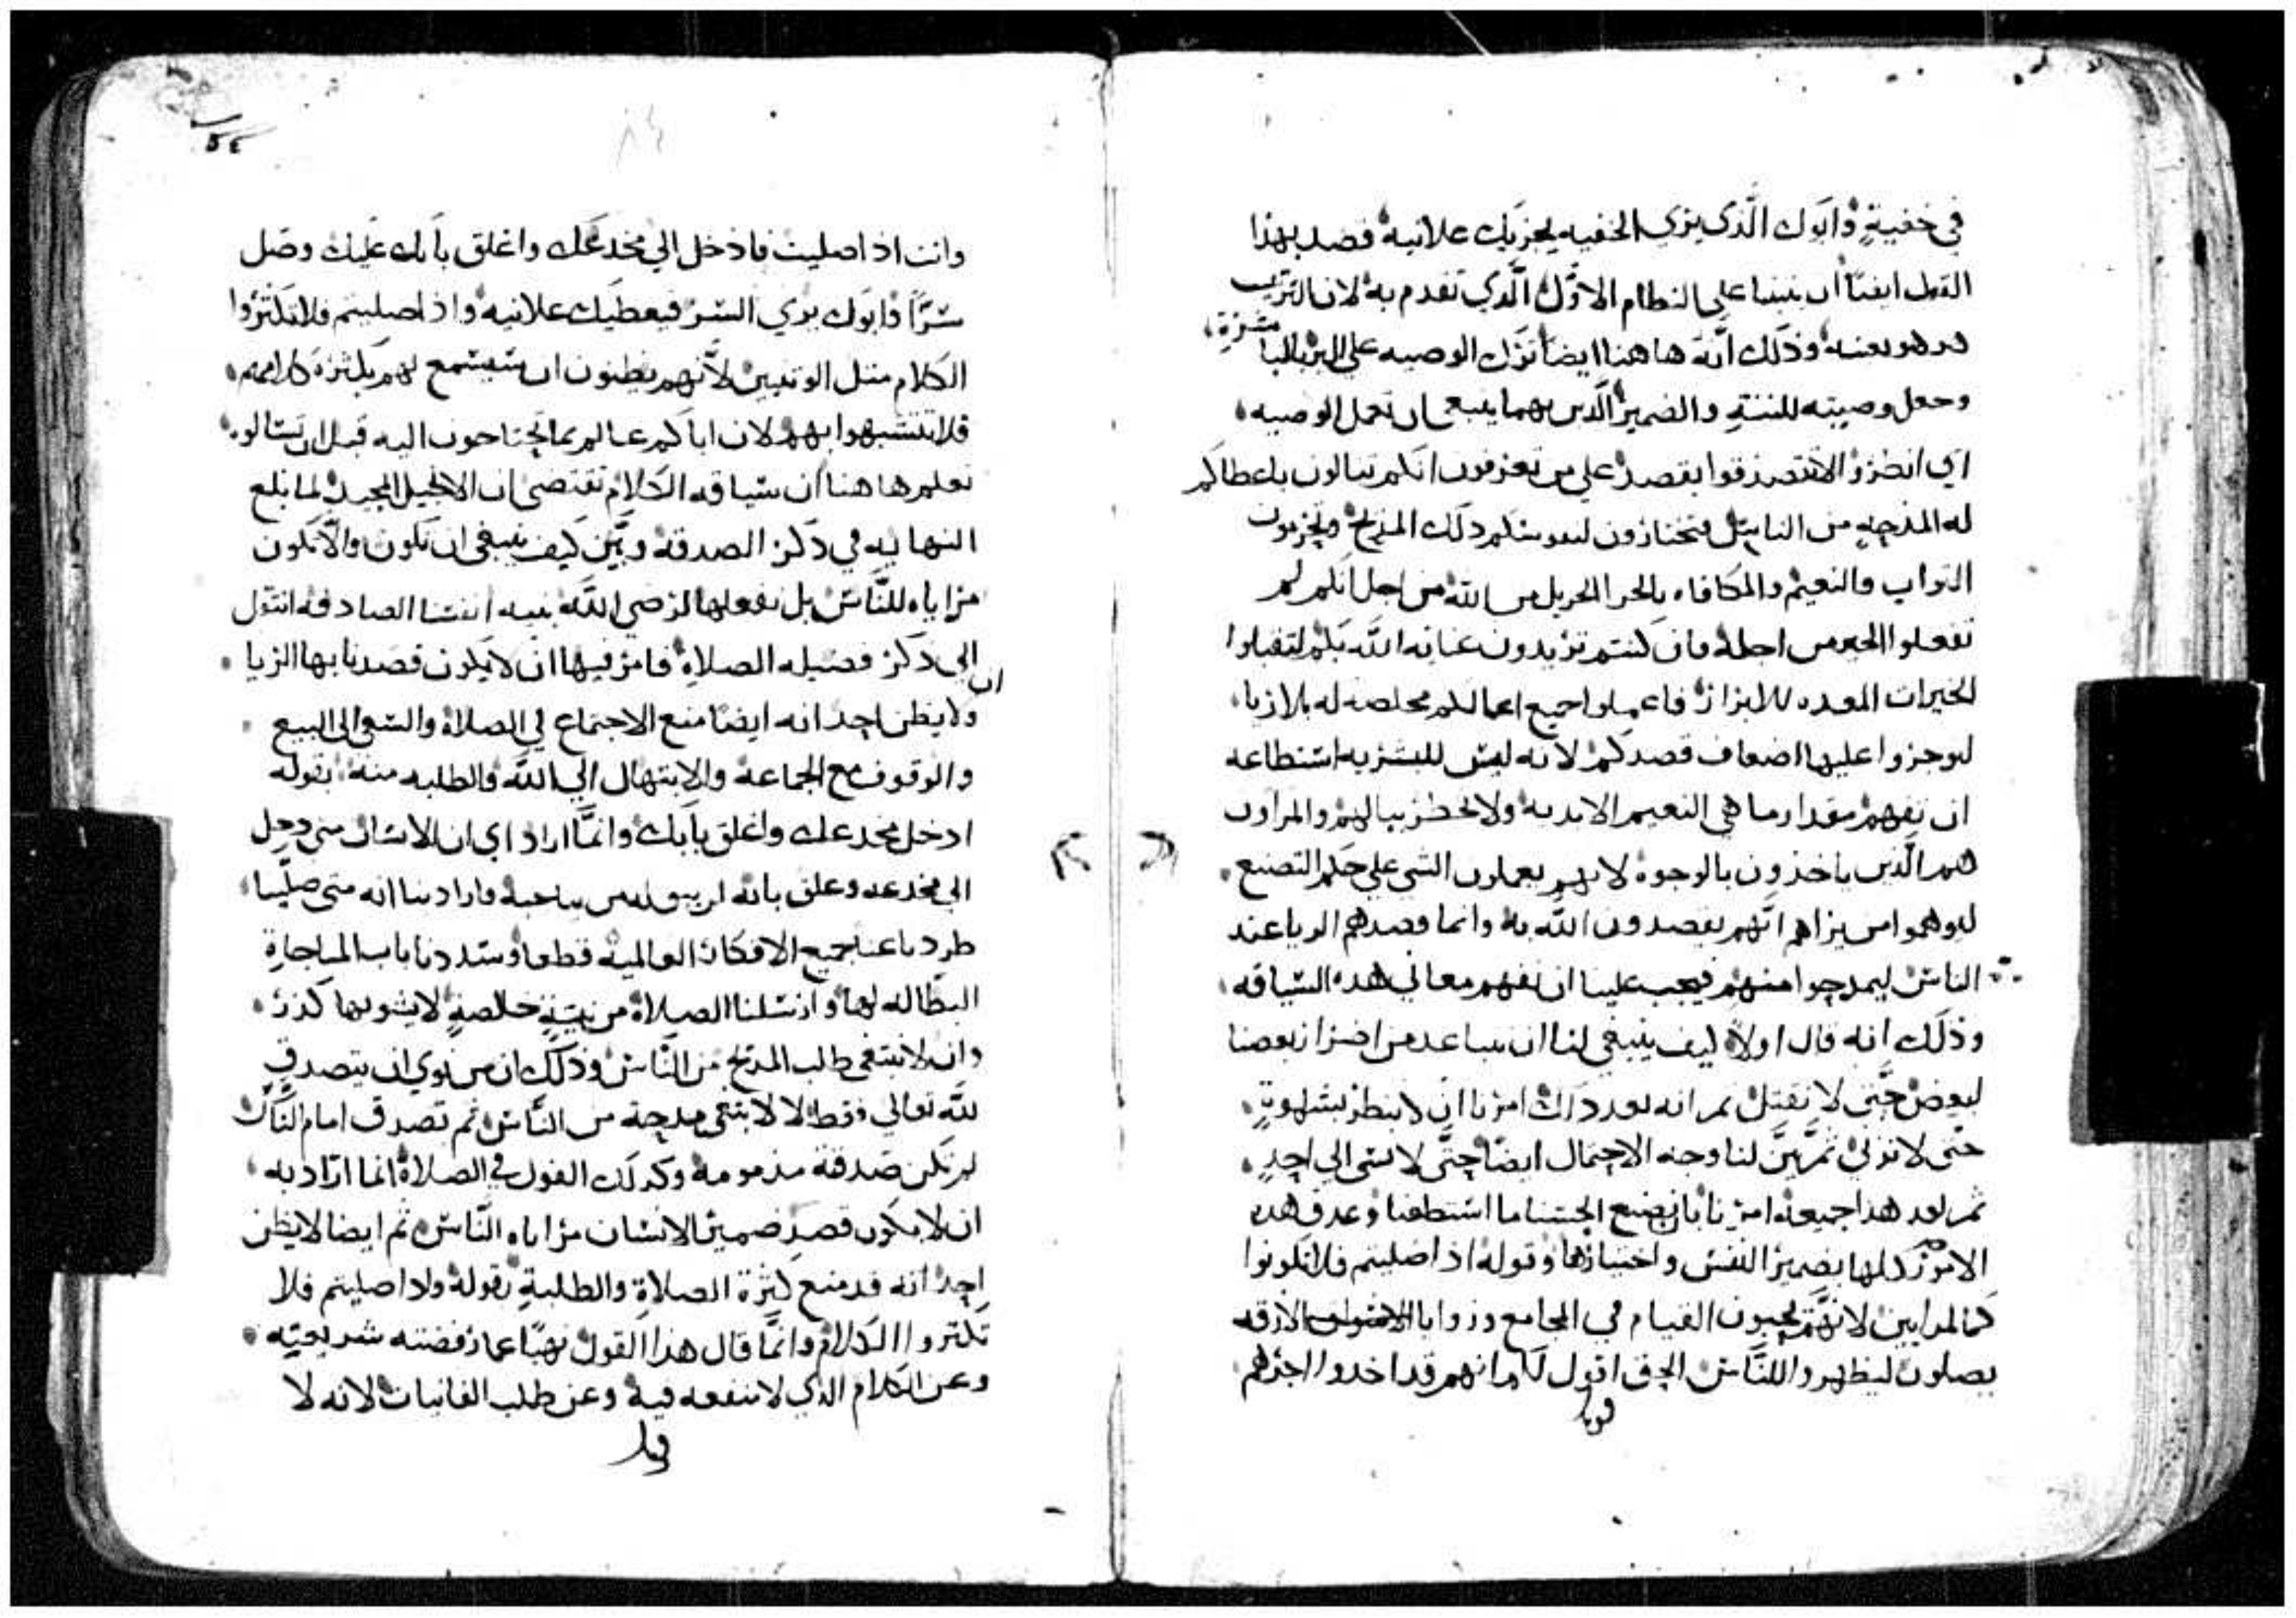 في خفية وابوك الذي يري الخفيه يجزيك علانية قصد بهذا
القول ايضا ان يبنينا علي النظام الاول الذي تقدم به لان الترتيب
هو هو بعينه وذلك انه هاهنا ايضا ترك الوصيه علي البر بالمباشرة
وجعل وصيته للنية والضمير الذين بهما ينبغي ان تعمل الوصيه
اي انظروا لا تتصدقوا بقصد علي من تعرفون انكم تنالون باعطاكم
له المدحه من الناس فتختارون لنفوسكم ذلك المديح وتخزمون
الثواب والنعيم والمكافاه بالخير الجزيل من الله من اجل انكم لم
تفعلوا الخير من اجله فان كنتم تريدون عنايه الله بكم لتقبلوا
الخيرات المعده للابرار فاعملوا جميع اعمالكم مخلصه له بلا ريا
لتوجروا عليها اضعاف قصدكم لانه ليس للبشريه استطاعه
ان تفهم مقدار ما هي النعيم الابديه ولا يخطر ببالهم والمراون
هم الذين ياخذون بالوجوه لانهم يعملون الشي علي حكم التصنع
ليوهموا من يراهم انهم يقصدون الله به وانما قصدهم الريا عند
الناس ليمدحوا منهم فيجب علينا ان نفهم معاني هذه السياقه
وذلك انه قال اولا كيف ينبغي لنا ان نتباعد من اضرار بعضنا
لبعض حتي لا نقتل ثم انه بعد ذلك امرنا ان لا ننظر بشهوة
حتي لا نزني ثم بين لنا وجه الاحتمال ايضا حتي لا نسي الي احد
ثم بعد هذا جميعه امرنا بان نصنع الحسنا ما استطعنا وعدق هذه
الامور كلها بضمير النفس واختيارها وقوله اذا صليتم فلا تكونوا
كالمرايين لانهم يحبون القيام في المجامع وزوايا الازقه
يصلون ليظهروا للناس الحق اقول لكم انهم قد اخدوا اجرهم
وانت اذا صليت فادخل الي مخدعك واغلق بابك عليك وصل
سرا وابوك يري السر فيعطيك علانيه واذا صليتم فلا تكثروا
الكلام مثل الوثنيين لانهم يظنون ان يستمع لهم بكثرة كلامهم
فلا تتشبهوا بهم لان اباكم عالم بما تحتاجون اليه قبل ان تسالوه
نعلم هاهنا ان سياقه الكلام تقتضي ان الانجيل المجيد لما بلغ
النهايه في ذكر الصدقه وبين كيف ينبغي ان تكون والا تكون
مراياه للناس بل نفعلها لرضي الله بنيه انفسنا الصادقه انتقل
الي ذكر فضيله الصلاة فامر فيها ان لا يكون قصدنا بها الريا
ولا يظن احد انه ايضا منع الاجتماع في الصلاة والسعي الي البيع
والوقوف مع الجماعة والابتهال الي الله والطلبه منه بقوله
ادخل مخدعك واغلق بابك وانما اراد اي ان الانسان متي دخل
الي مخدعه وغلق بابه لم يبق له من يناحبه فاراد بنا انه متي صلينا
طردنا عنا جميع الافكار العالمية قطعا وسددنا باب المناجاة
البطاله لها وارسلنا الصلاة من نية خالصة لا يشوبها كدر
وان لا نبتغي طلب المدح من الناس وذلك ان من نوي ان يتصدق
لله تعالي فقط لا لابتغي مدحة من الناس ثم تصدق امام الناس
لم تكن صدقة مذمومة وكذلك القول في الصلاة انما اراد به
ان لا يكون قصد ضمير الانسان مراياه الناس ثم ايضا لا يظن
احد انه قد منع كثرة الصلاة والطلبة بقوله واذا صليتم فلا
تكثروا الكلام وانما قال هذا القول نهيا عما رفضته شريعته
وعن الكلام الذي لا منفعه فيه وعن طلب الفانيات لانه لا